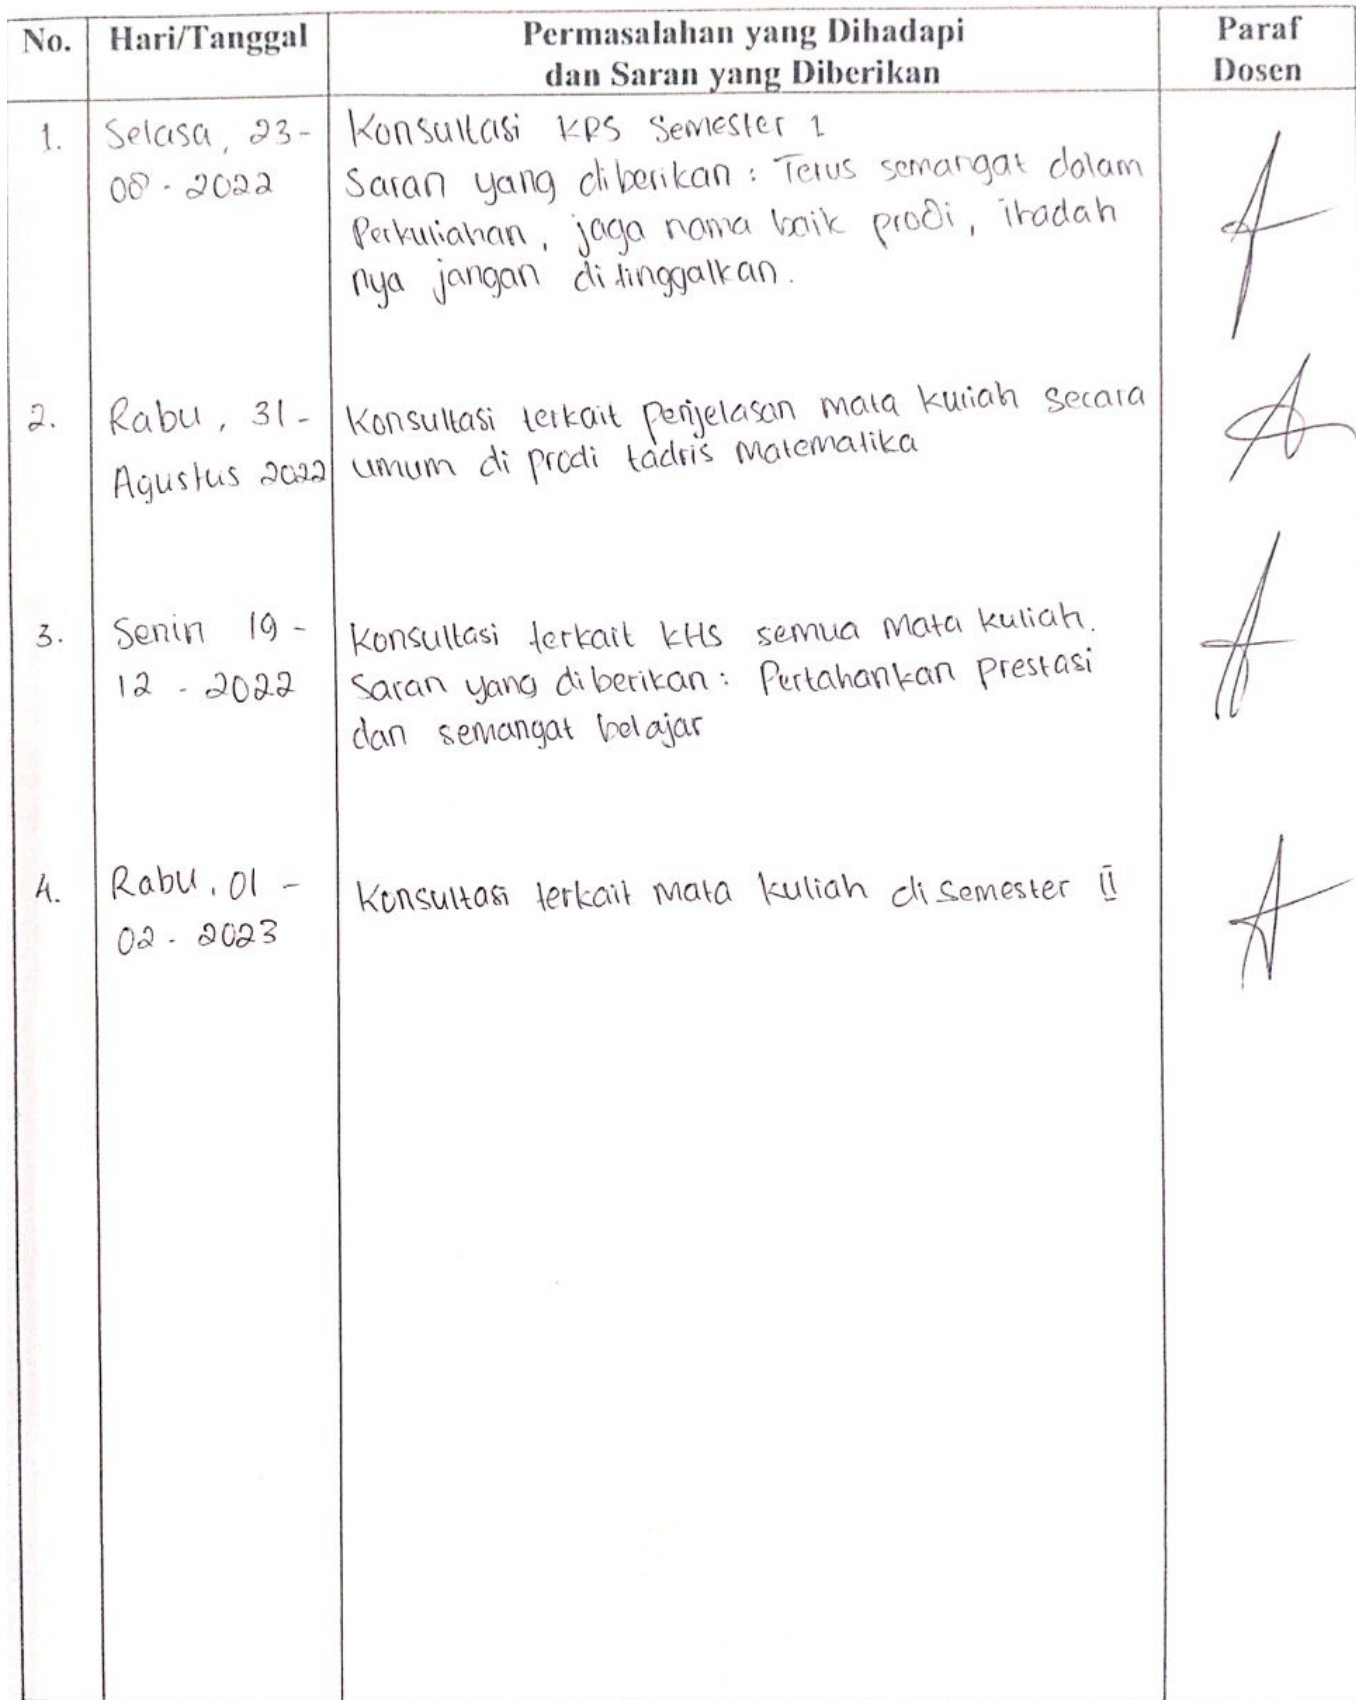 No. Hari/Tanggal Permasalahan yang Dihadapi dan Saran yang Diberikan Paraf Dosen
1. Selasa, 23-
08-2022
Konsultasi KRS Semester 1
Saran yang diberikan : Terus semangat dalam
Perkuliahan, jaga nama baik prodi, ibadah
nya jangan ditinggalkan.
2. Rabu, 31-
Agustus 2022
Konsultasi terkait penjelasan mata kuliah secara
umum di prodi tadris Matematika
3. Senin 19-
12-2022
Konsultasi terkait KHS semua Mata kuliah.
Saran yang diberikan : Pertahankan prestasi
dan semangat belajar
4. Rabu, 01-
02-2023
Konsultasi terkait Mata kuliah di semester II